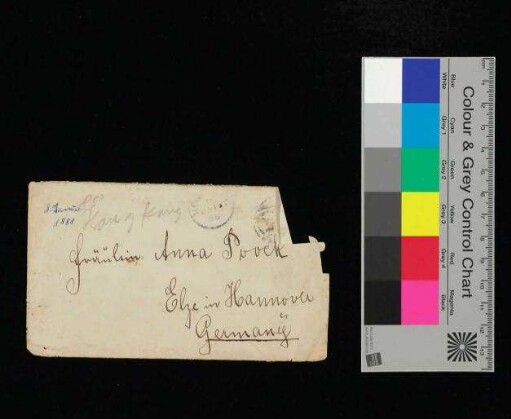 8 Januar
1888
Hong Kong
Fräulein Anna Poock
Elze in Hannover
Germany
Colour & Grey Control Chart
Blue Cyan Green Yellow Red Magenta
White Grey 1 Grey 2 Grey 3 Grey 4 Black